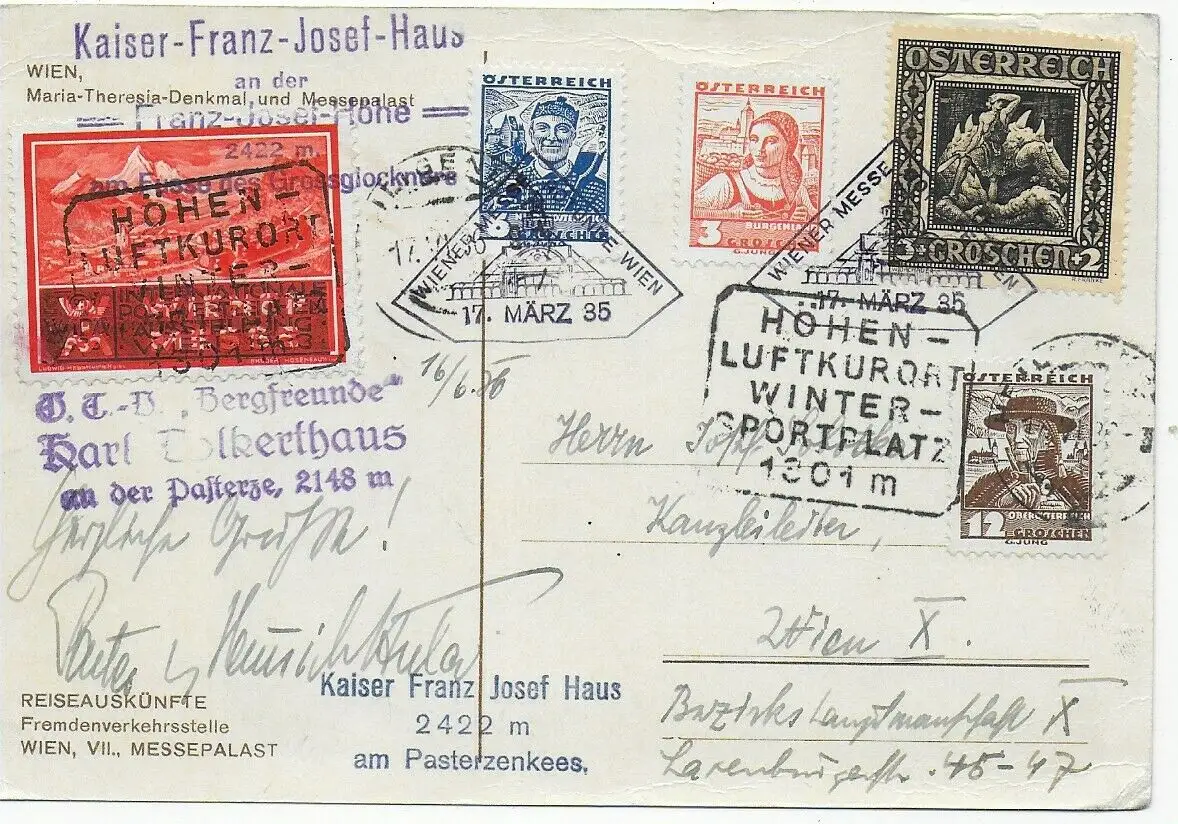 Kaiser-Franz-Josef-Haus
an der
Franz-Josef-Höhe
2422 m.
am Fusse des Grossglockners
WIEN,
Maria-Theresia-Denkmal, und Messepalast
HÖHEN-
LUFTKURORT
WINTER-
1301 m
WIEN
O. T.-V. „Bergfreunde“
Karl Volkerthaus
an der Pasterze, 2148 m
Herzliche Grüße!
REISEAUSKÜNFTE
Fremdenverkehrsstelle
WIEN, VII., MESSEPALAST
Kaiser Franz Josef Haus
2422 m
am Pasterzenkees.
ÖSTERREICH
6
GROSCHEN
WIENER MESSE
WIEN
17. MÄRZ 35
16/6.36
ÖSTERREICH
BURGENLAND
3 GROSCHEN
ÖSTERREICH
3 GROSCHEN+2
WIENER MESSE
17. MÄRZ 35
HÖHEN-
LUFTKURORT
WINTER-
SPORTPLATZ
1301 m
ÖSTERREICH
OBERÖSTERREICH
12 GROSCHEN
G.JUNG
Herrn
Kanzleileiter,
Wien X.
Bezirkshauptmannschaft X
Laxenburgerstr. 45-47